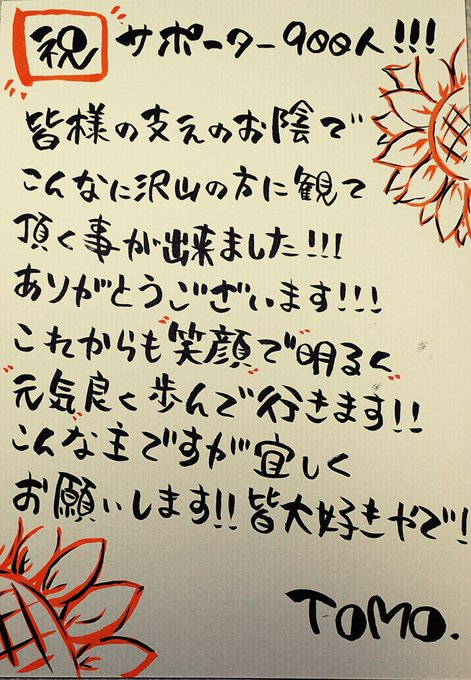 祝 サポーター900人!!!
皆様の支えのお陰で
こんなに沢山の方に観て
頂く事が出来ました!!!
ありがとうございます!!!
これからも笑顔で明るく
元気良く歩んで行きます!!
こんな主ですが宜しく
お願いします!!皆大好きやで!
TOMO.